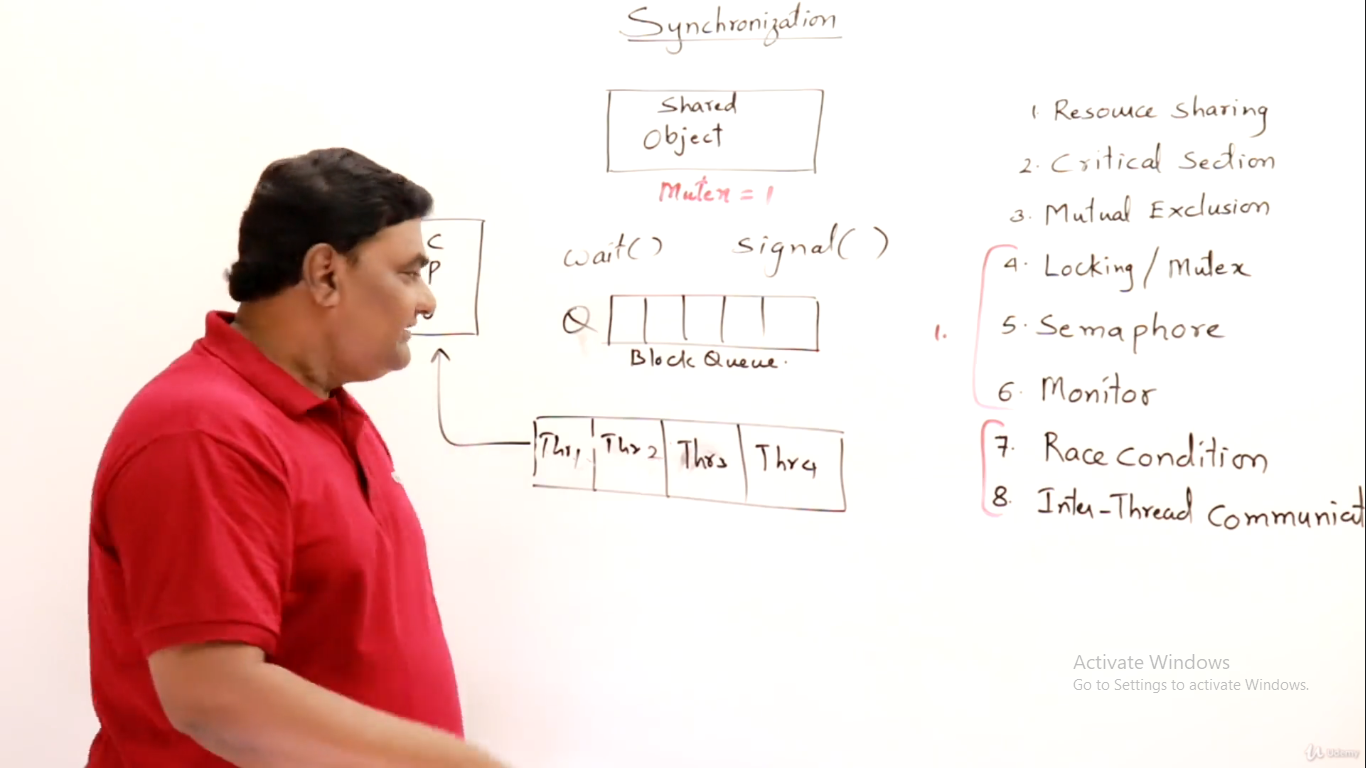 Synchronization
Shared
Object
Mutex = 1
wait() signal()
Q
Block Queue.
C
P
U
Thr1 Thr2 Thr3 Thr4
1. Resource Sharing
2. Critical Section
3. Mutual Exclusion
1.
4. Locking / Mutex
5. Semaphore
6. Monitor
7. Race condition
8. Inter-Thread Communicat
Activate Windows
Go to Settings to activate Windows.
Udemy